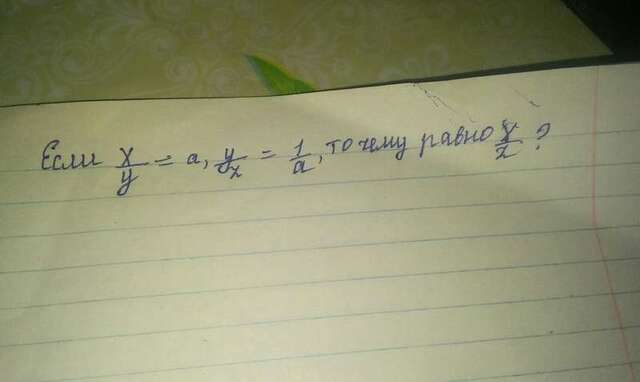 Если x/y = a, y/x = 1/a, то чему равно x/z?